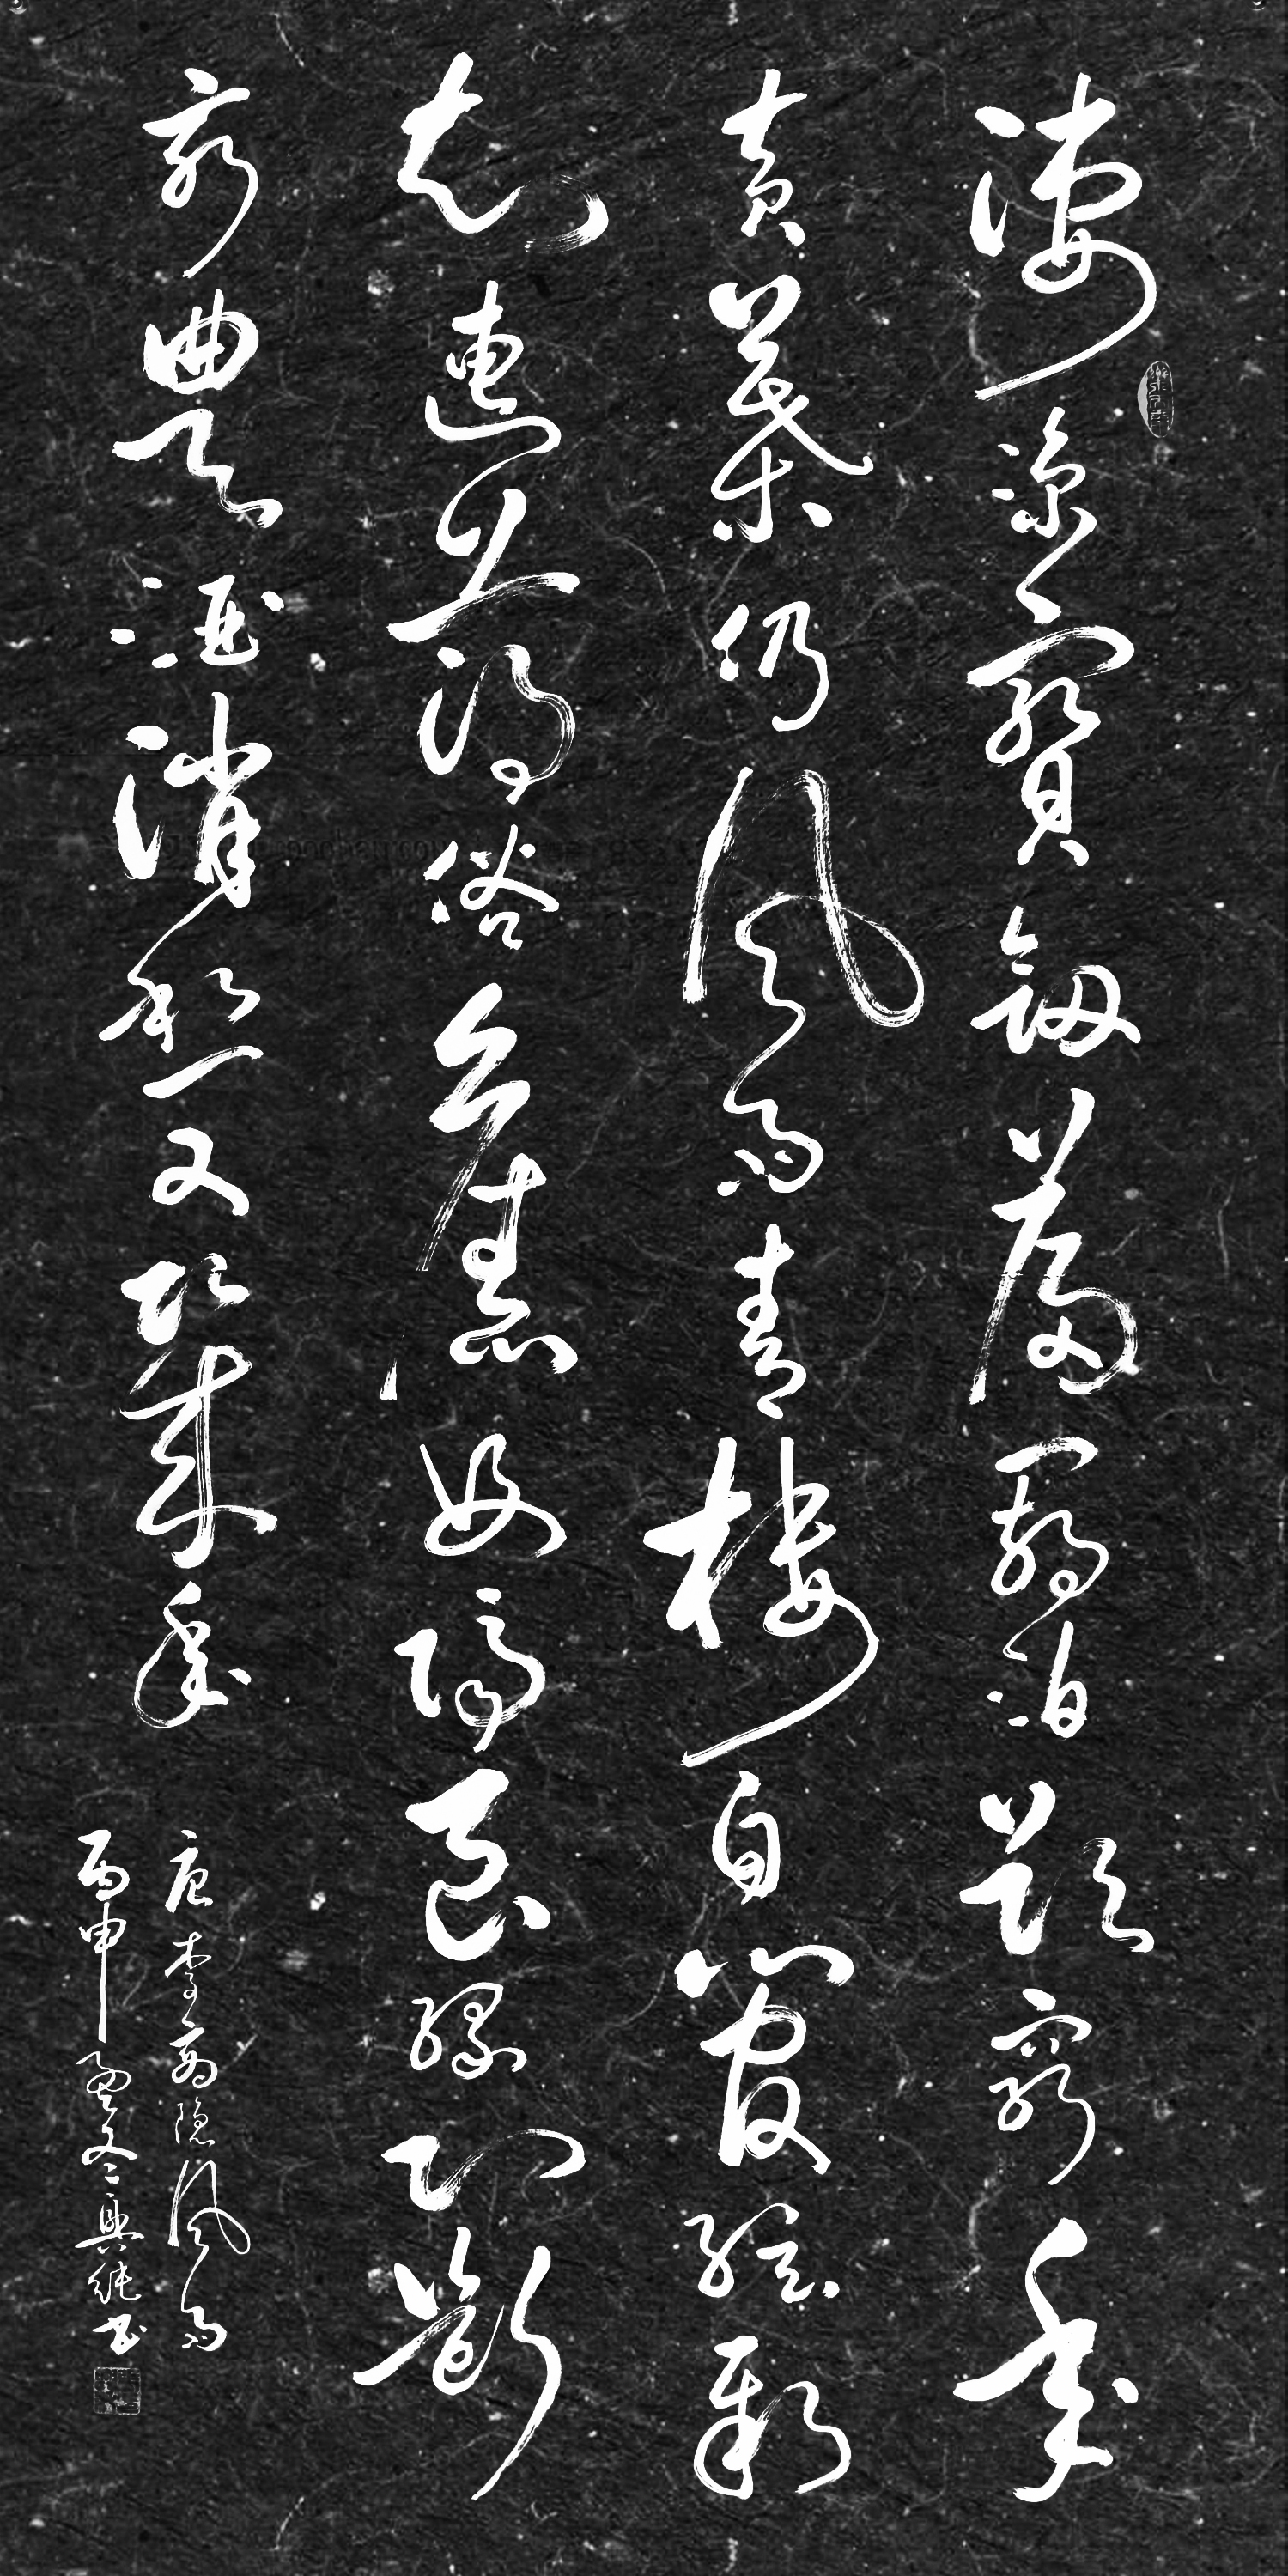 凄涼寶劍篇羈泊欲窮年
黄葉仍風雨青樓自管絃新
知遭薄俗舊好隔良緣心斷
新豐酒消愁又幾
唐李商隐風雨
丙申孟冬興純書